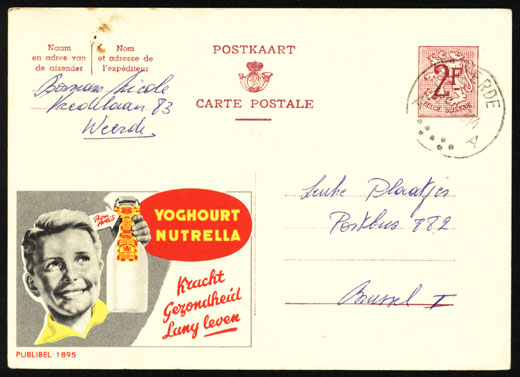 Naam en adres van de afzender
Nom et adresse de l'expéditeur
Nicole
83
Weerde
POSTKAART
CARTE POSTALE
2F
BELGIE BELGIQUE
WEERDE
A
YOGHOURT
NUTRELLA
Kracht
Gezondheid
Lang leven
Leuke Plaatjes
Postbus 822
Brussel I
PUBLIBEL 1895